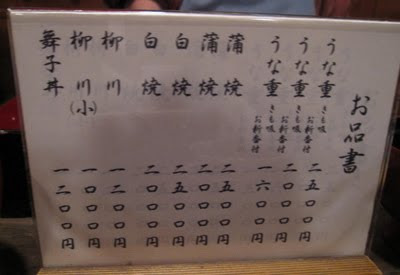 お品書
うな重 きも吸 お新香付 二五〇〇円
うな重 きも吸 お新香付 二〇〇〇円
うな重 きも吸 お新香付 一六〇〇円
蒲焼 二五〇〇円
蒲焼 二〇〇〇円
白焼 二五〇〇円
白焼 二〇〇〇円
柳川 一二〇〇円
柳川(小) 一〇〇〇円
舞子丼 一二〇〇円